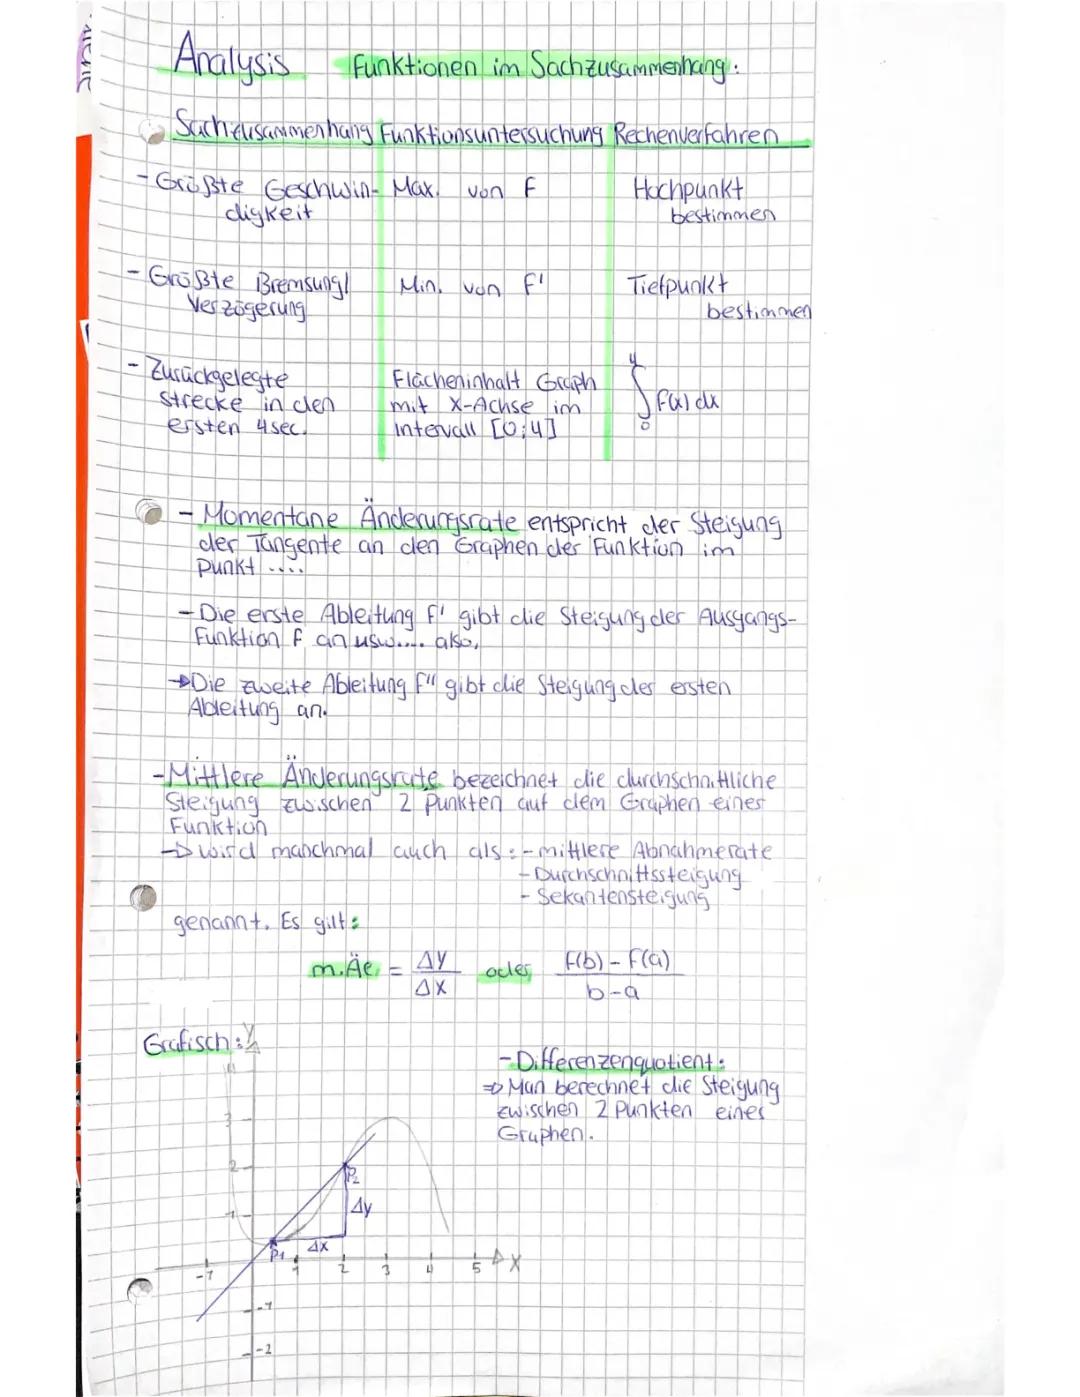 Analysis Funktionen im Sachzusammenhang:
Sachzusammenhang Funktionsuntersuchung Rechenverfahren
- Größte Geschwin- Max. von f Hochpunkt
digkeit bestimmen
- Größte Bremsung/ Min. von f' Tiefpunkt
Verzögerung bestimmen
- Zurückgelegte Flächeninhalt Graph 4
strecke in den mit X-Achse im ∫ f(x) dx
ersten 4 sec. Intervall [0;4] 0
- Momentane Änderungsrate entspricht der Steigung
der Tangente an den Graphen der Funktion im
Punkt ....
- Die erste Ableitung f' gibt die Steigung der Ausgangs-
funktion f an usw.... also,
→ Die zweite Ableitung f'' gibt die Steigung der ersten
Ableitung an.
- Mittlere Änderungsrate bezeichnet die durchschnittliche
Steigung zwischen 2 Punkten auf dem Graphen einer
Funktion
→ wird manchmal auch als: - mittlere Abnahmerate
- Durchschnittssteigung
- Sekantensteigung
genannt. Es gilt:
m.Äe. = Δy/Δx oder f(b) - f(a)/b-a
Grafisch: y
- Differenzenquotient:
⇒ Man berechnet die Steigung
zwischen 2 Punkten eines
Graphen.
3
2 P2
1 Δy
P1 Δx
-1 1 2 3 4 5 X
-1
-2